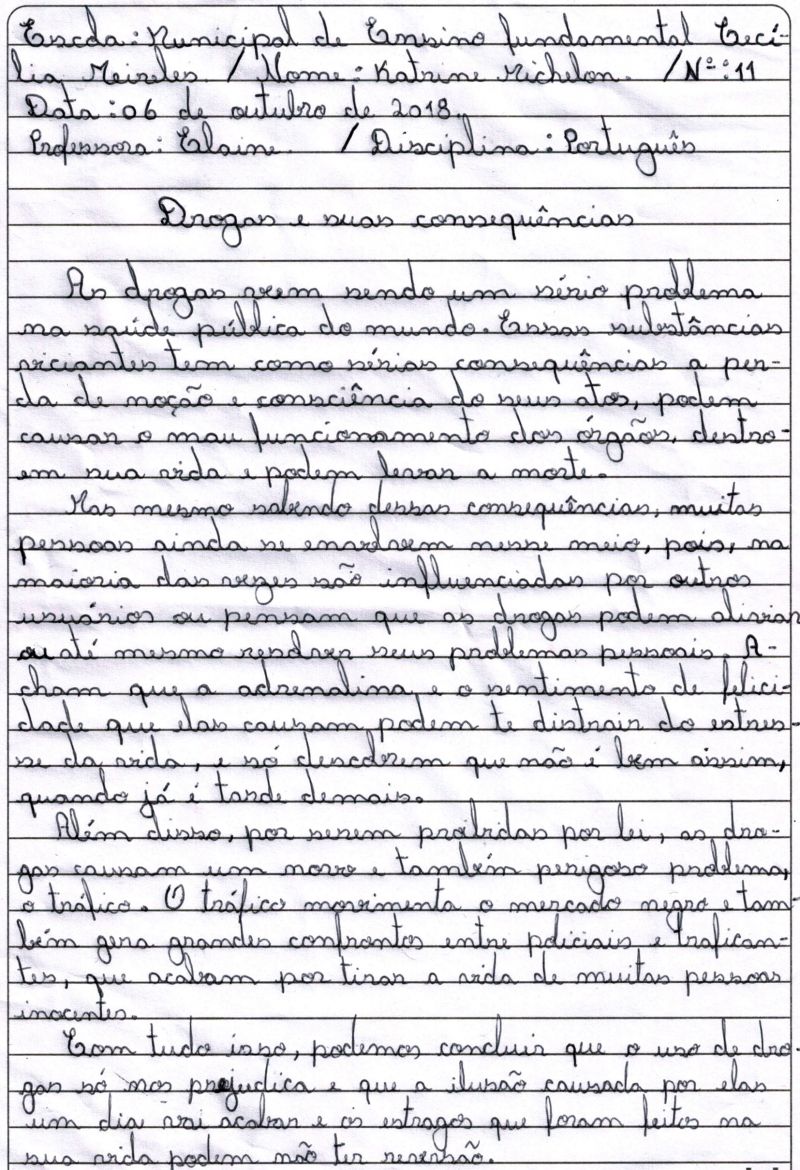 Escola: Municipal de Ensino fundamental Cecí-
lia Meireles. / Nome: Katrine Michelon. / Nº: 11
Data: 06 de outubro de 2018.
Professora: Elaine. / Disciplina: Português
Drogas e suas consequências
As drogas vem sendo um sério problema
na saúde pública do mundo. Essas substâncias
viciantes tem como sérias consequências a per-
da de noção e consciência do seus atos, podem
causar o mau funcionamento dos órgãos, destro-
em sua vida e podem levar a morte.
Mas mesmo sabendo dessas consequências, muitas
pessoas ainda se envolvem nesse meio, pois, na
maioria das vezes são influenciadas por outros
usuários ou pensam que as drogas podem aliviar
ou até mesmo resolver seus problemas pessoais. A-
cham que a adrenalina e o sentimento de felici-
dade que elas causam podem te distrair do estres-
se da vida, e só descobrem que não é bem assim,
quando já é tarde demais.
Além disso, por serem proibidas por lei, as dro-
gas causam um novo e também perigoso problema,
o tráfico. O tráfico movimenta o mercado negro e tam-
bém gera grandes confrontos entre policiais e trafican-
tes, que acabam por tirar a vida de muitas pessoas
inocentes.
Com tudo isso, podemos concluir que o uso de dro-
gas só nos prejudica e que a ilusão causada por elas
um dia vai acabar e os estragos que foram feitos na
sua vida podem não ter reversão.